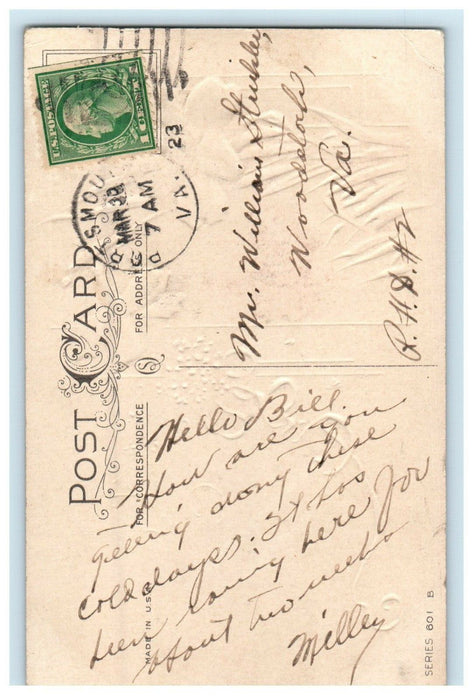 POST CARD
FOR CORRESPONDENCE
FOR ADDRESS ONLY
MADE IN U.S.
SERIES 601 B
U.S. POSTAGE
1 CENT 1
MAR 30
7 AM
VA.
23
Mr. William
Woodstock,
Va.
Hello Bill.
How are you
getting along these
cold days. It has
been raining here for
about two weeks
Milley